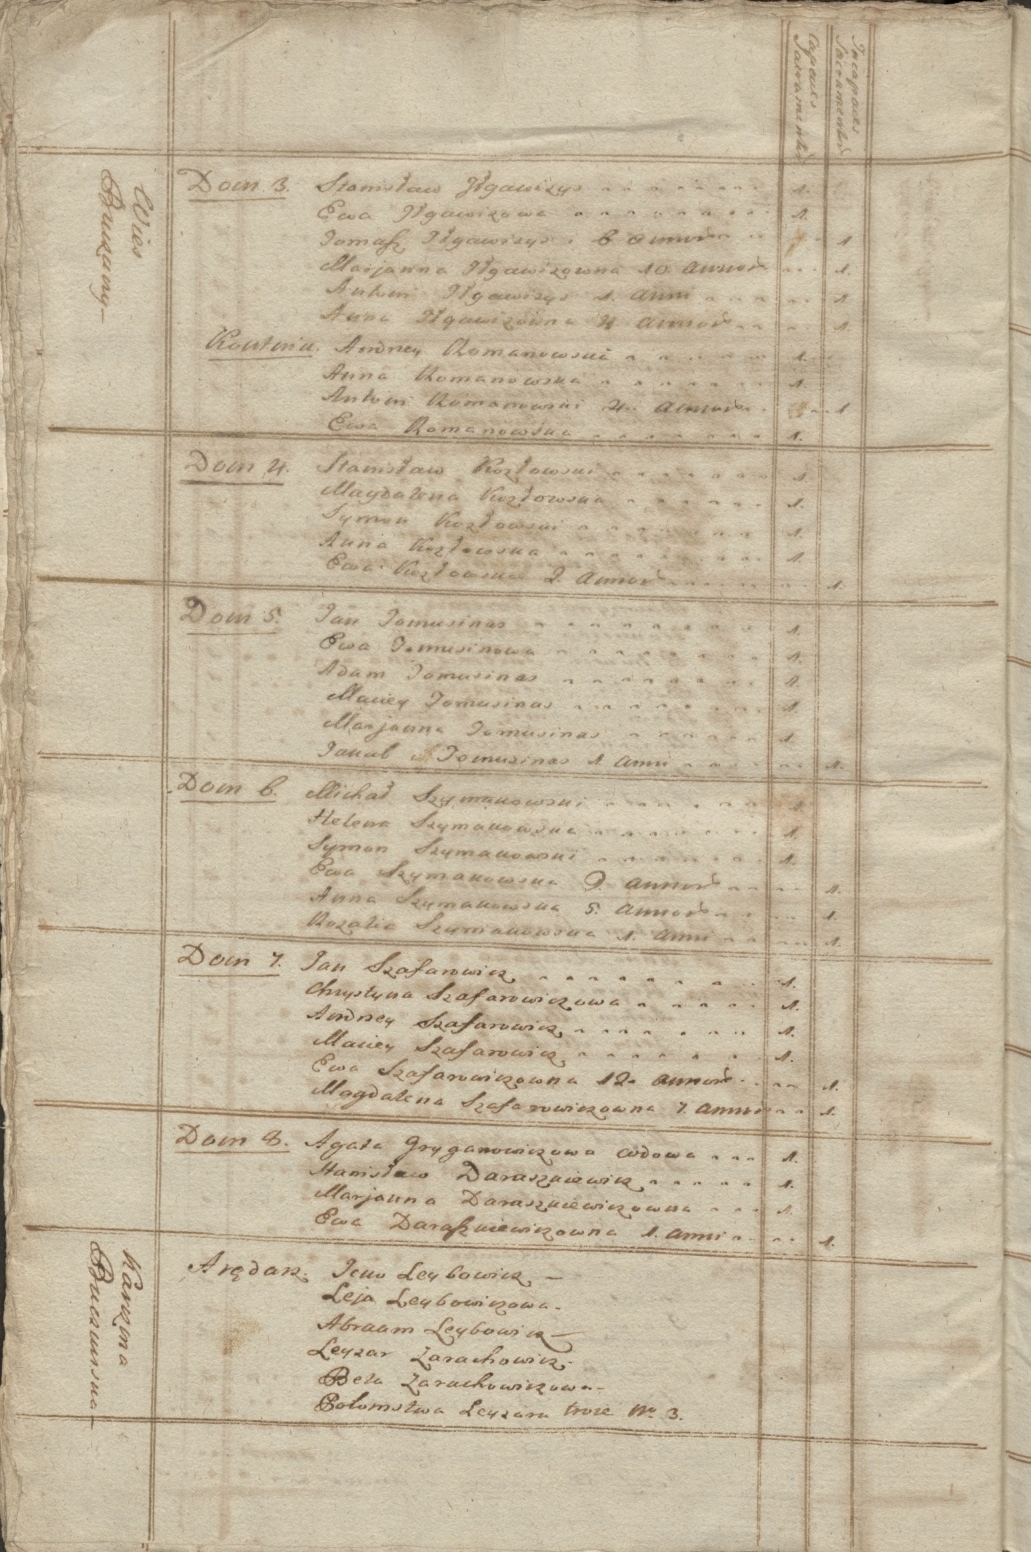 Capaces Sacramentor
Incapaces Sacramentor
Wies
Dom 3. Stanisław Jłgawizys 1.
Ewa Jłgawizowa 1.
Tomasz Jłgawizys 6 annor 1
Marjanna Jłgawizowna 10. annor 1.
Antoni Jłgawizys 1. anni 1
Anna Jłgawizowna 4 annor 1.
Andrzey Romanowski 1.
Anna Romanowska 1.
Antoni Romanowski 4. annor 1
Ewa Romanowska 1.
Dom 4. Stanisław Kozłowski 1.
Magdalena Kozłowska 1.
Symon Kozłowski 1.
Anna Kozłowska 1.
Ewa Kozłowska 2 annor 1.
Dom 5. Jan Tomusinas 1.
Ewa Tomusinowa 1.
Adam Tomusinas 1.
Maciey Tomusinas 1.
Marjanna Tomusinas 1.
Jakub Tomusinas 1 anni 1.
Dom 6. Michał Szymakowski 1.
Helena Szymakowska 1.
Symon Szymakowski 1.
Ewa Szymakowska 9. annor 1.
Anna Szymakowska 5. annor 1.
Rozalia Szymakowska 1. anni 1.
Dom 7. Jan Szafarowicz 1.
Chrystyna Szafarowiczowa 1.
Andrzey Szafarowicz 1.
Maciey Szafarowicz 1.
Ewa Szafarowiczowna 12. annor 1.
Magdalena Szafarowiczowna 7 annor 1.
Dom 8. Agata Gryganowiczowa wdowa 1.
Stanisław Daraszkiewicz 1.
Marjanna Daraszkiewiczowna 1.
Ewa Daraszkiewiczowna 1. anni 1.
Karczma
Arędarz. Icko Leybowicz
Leja Leybowiczowa
Abraam Leybowicz
Leyzar Zarachowicz
Beta Zarachowiczowa
Potomstwa Leyzara troie No 3.